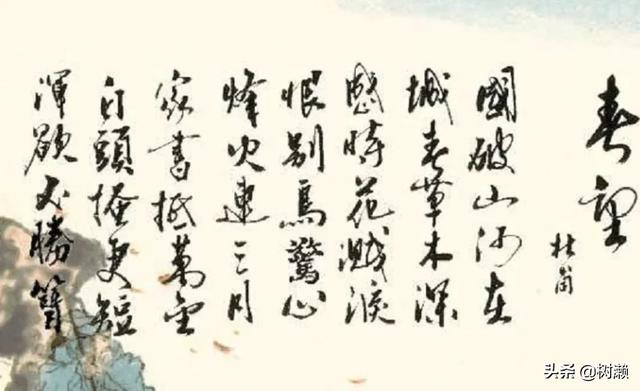 春望
杜甫
國破山河在
城春草木深
感時花濺淚
恨别鳥驚心
烽火連三月
家書抵萬金
白頭搔更短
渾欲不勝簪
头条 @树濑